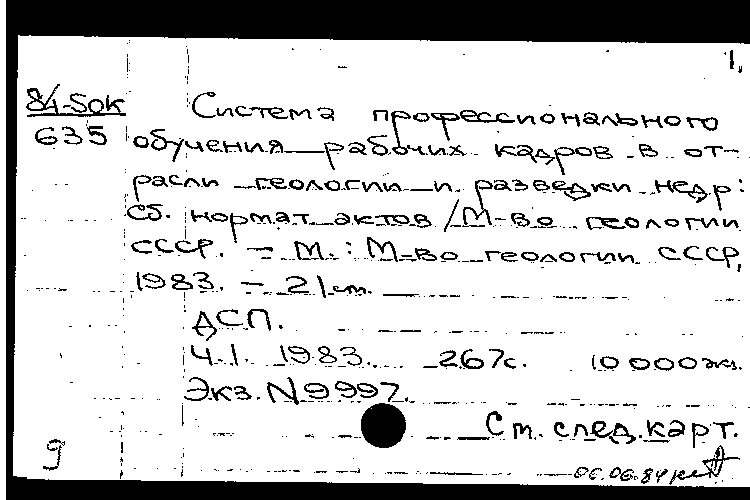 1.
84-5ок
635
Система профессионального
обучения рабочих кадров в от-
расли геологии и разведки недр:
Сб. нормат. актов / М-во геологии
СССР. - М. : М-во геологии СССР,
1983. - 21 cm.
ДСП.
Ч.1. 1983. 267с. 10 000 экз.
Экз. N9997.
Ст. след. карт.
9
06.06.84